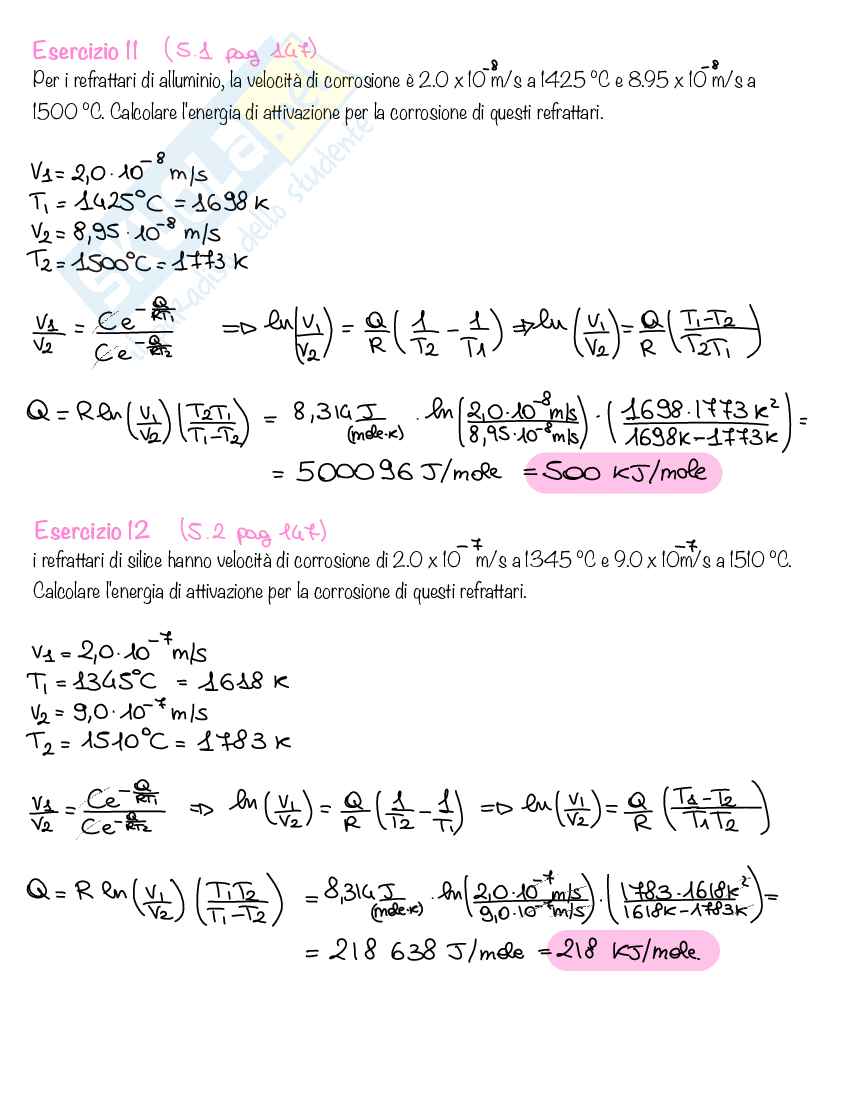 Esercizio 11 (5.1 pag 147)
Per i refrattari di alluminio, la velocità di corrosione è 2.0 x 10⁻⁸ m/s a 1425 °C e 8.95 x 10⁻⁸ m/s a
1500 °C. Calcolare l'energia di attivazione per la corrosione di questi refrattari.
V1 = 2,0·10⁻⁸ m/s
T1 = 1425°C = 1698 K
V2 = 8,95·10⁻⁸ m/s
T2 = 1500°C = 1773 K
V1/V2 = Ce^(-Q/RT1)/Ce^(-Q/RT2) => ln(V1/V2) = Q/R (1/T2 - 1/T1) => ln(V1/V2) = Q/R (T1-T2/T2T1)
Q = R ln(V1/V2)(T2T1/T1-T2) = 8,314 J/(mole·K) · ln(2,0·10⁻⁸ m/s / 8,95·10⁻⁸ m/s) · (1698·1773 K² / 1698K-1773K) =
= 500096 J/mole = 500 KJ/mole
Esercizio 12 (5.2 pag 147)
i refrattari di silice hanno velocità di corrosione di 2.0 x 10⁻⁷ m/s a 1345 °C e 9.0 x 10⁻⁷ m/s a 1510 °C.
Calcolare l'energia di attivazione per la corrosione di questi refrattari.
V1 = 2,0·10⁻⁷ m/s
T1 = 1345°C = 1618 K
V2 = 9,0·10⁻⁷ m/s
T2 = 1510°C = 1783 K
V1/V2 = Ce^(-Q/RT1)/Ce^(-Q/RT2) => ln(V1/V2) = Q/R (1/T2 - 1/T1) => ln(V1/V2) = Q/R (T1-T2/T1T2)
Q = R ln(V1/V2)(T1T2/T1-T2) = 8,314 J/(mole·K) · ln(2,0·10⁻⁷ m/s / 9,0·10⁻⁷ m/s) · (1783·1618K² / 1618K-1783K) =
= 218 638 J/mole = 218 KJ/mole.